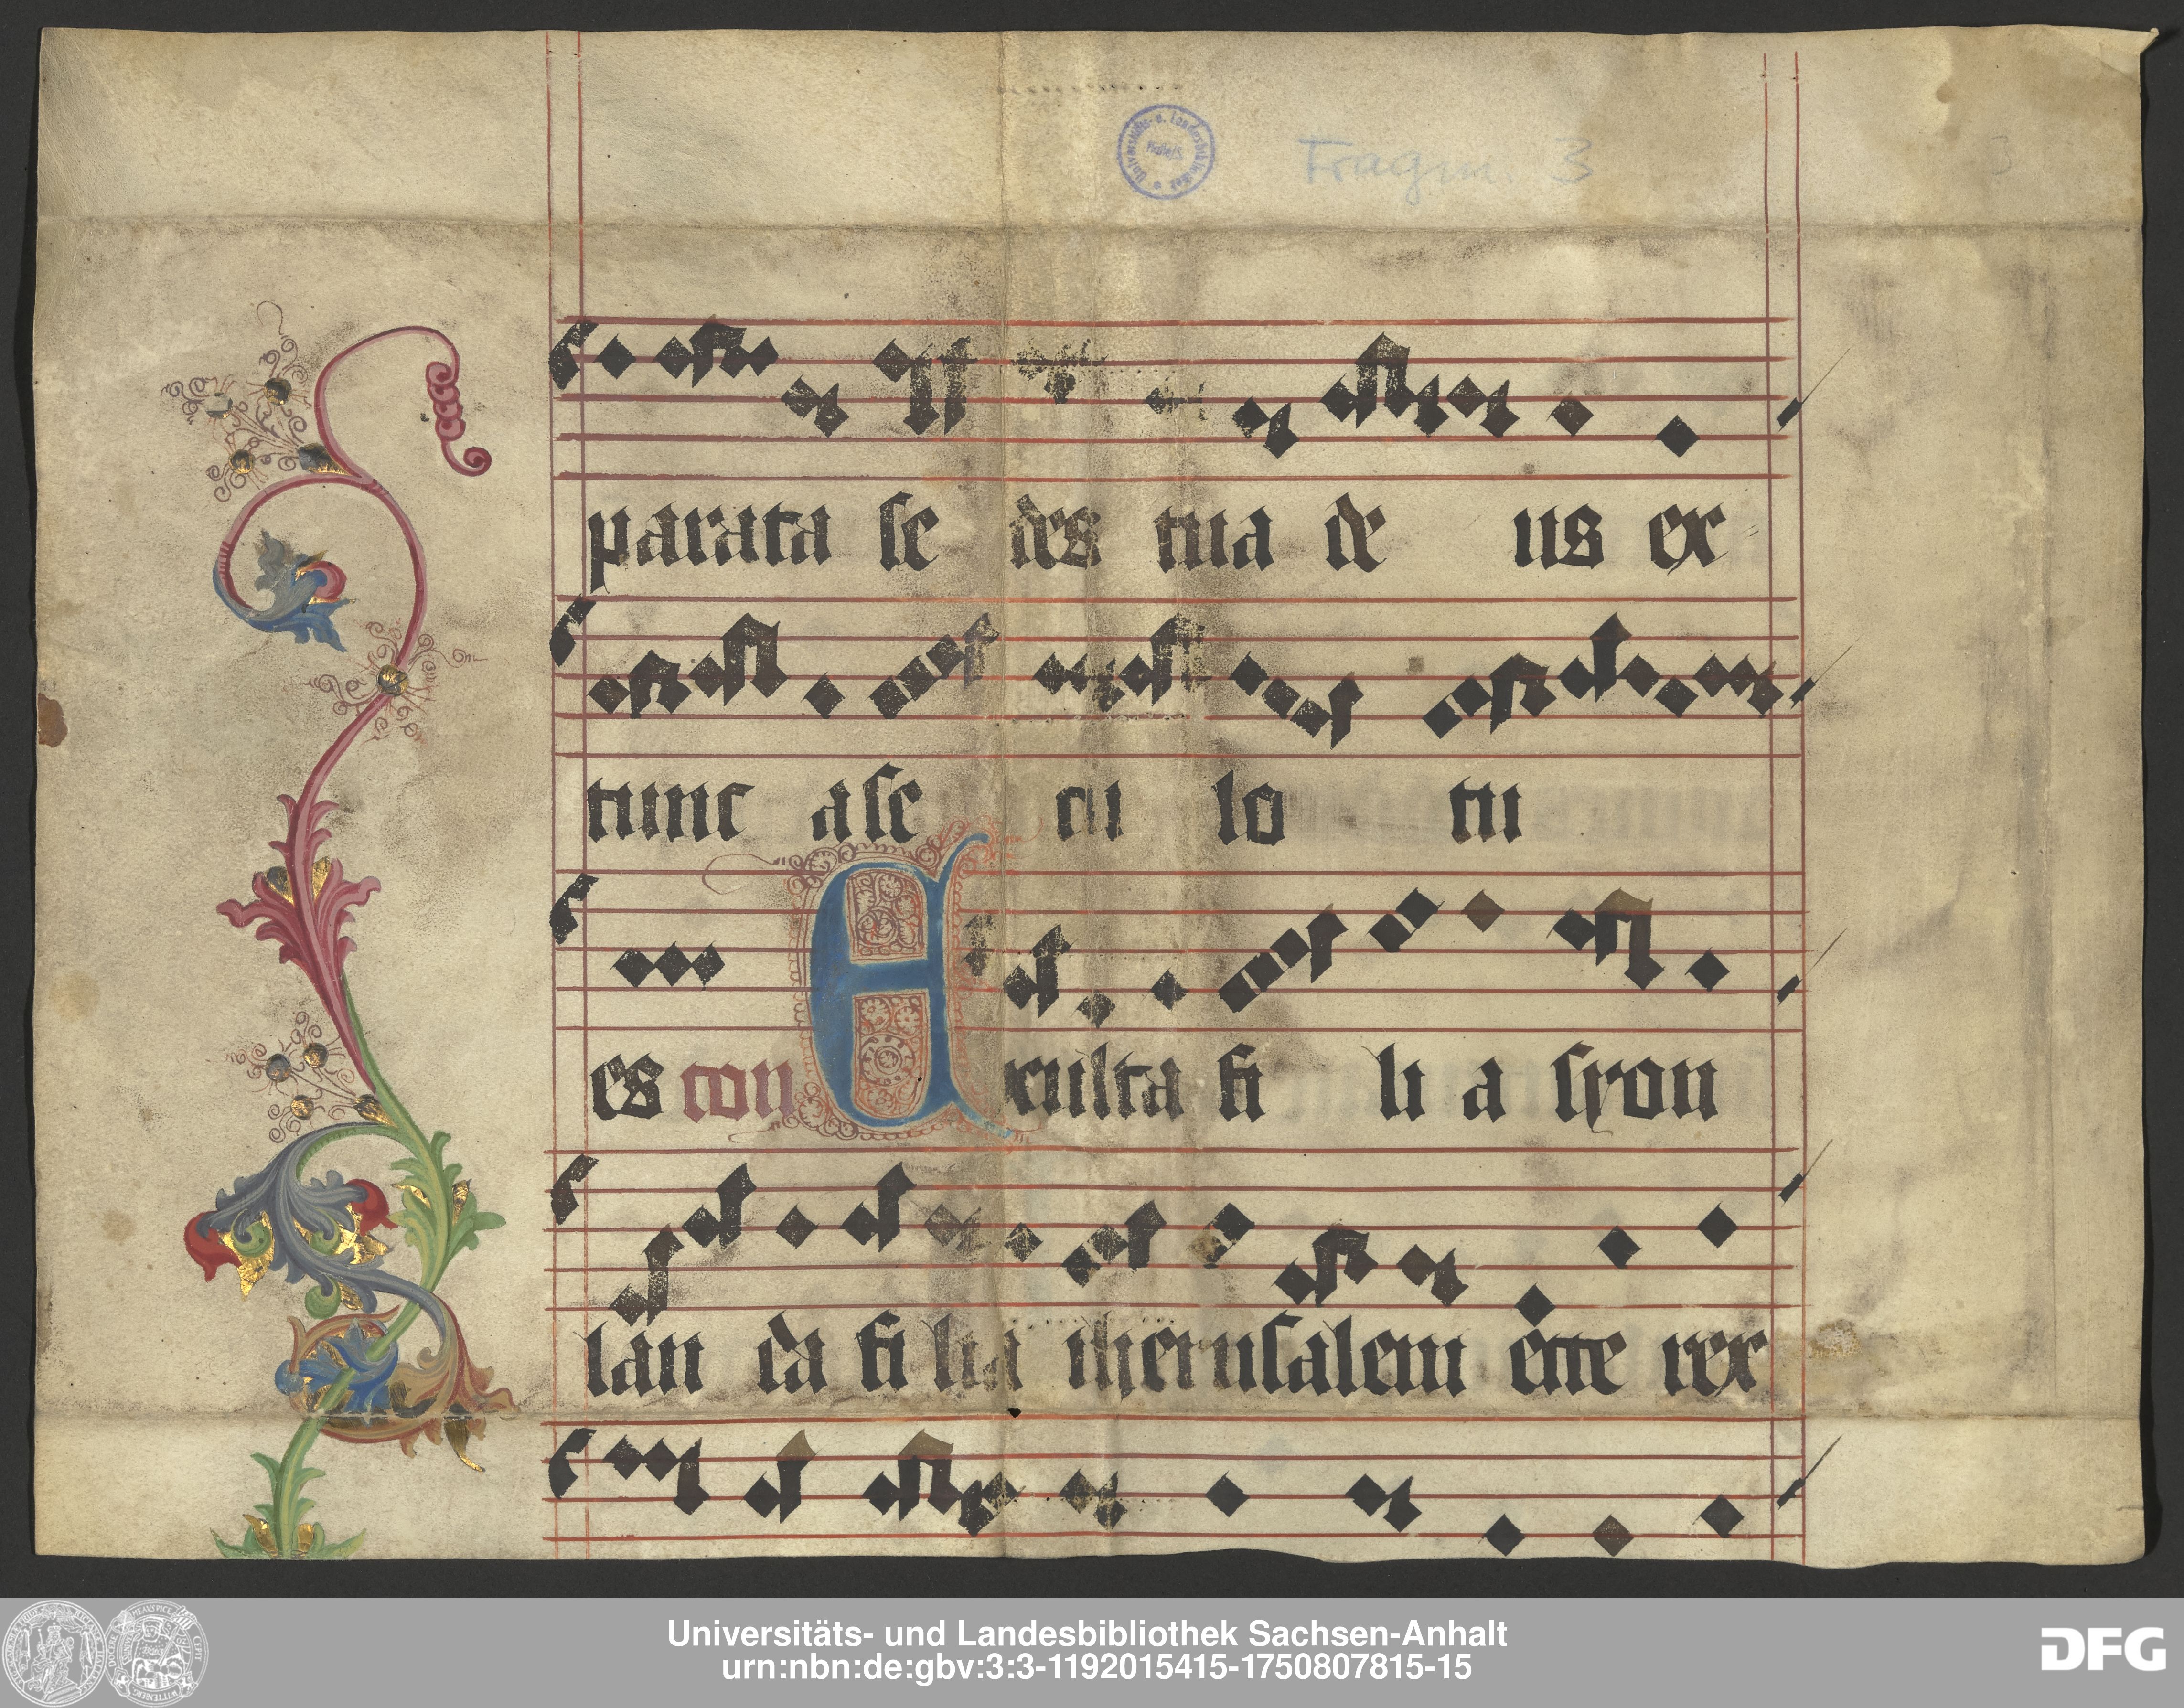 Universitäts- u. Landesbibliothek Halle/S.
Fragm. 3
parata se des tua de us ex
tunc a se cu lo tu
es con Exculta fi li a syon
lau da fi lia iherusalem ecce rex
Universitäts- und Landesbibliothek Sachsen-Anhalt
urn:nbn:de:gbv:3:3-1192015415-1750807815-15
DFG